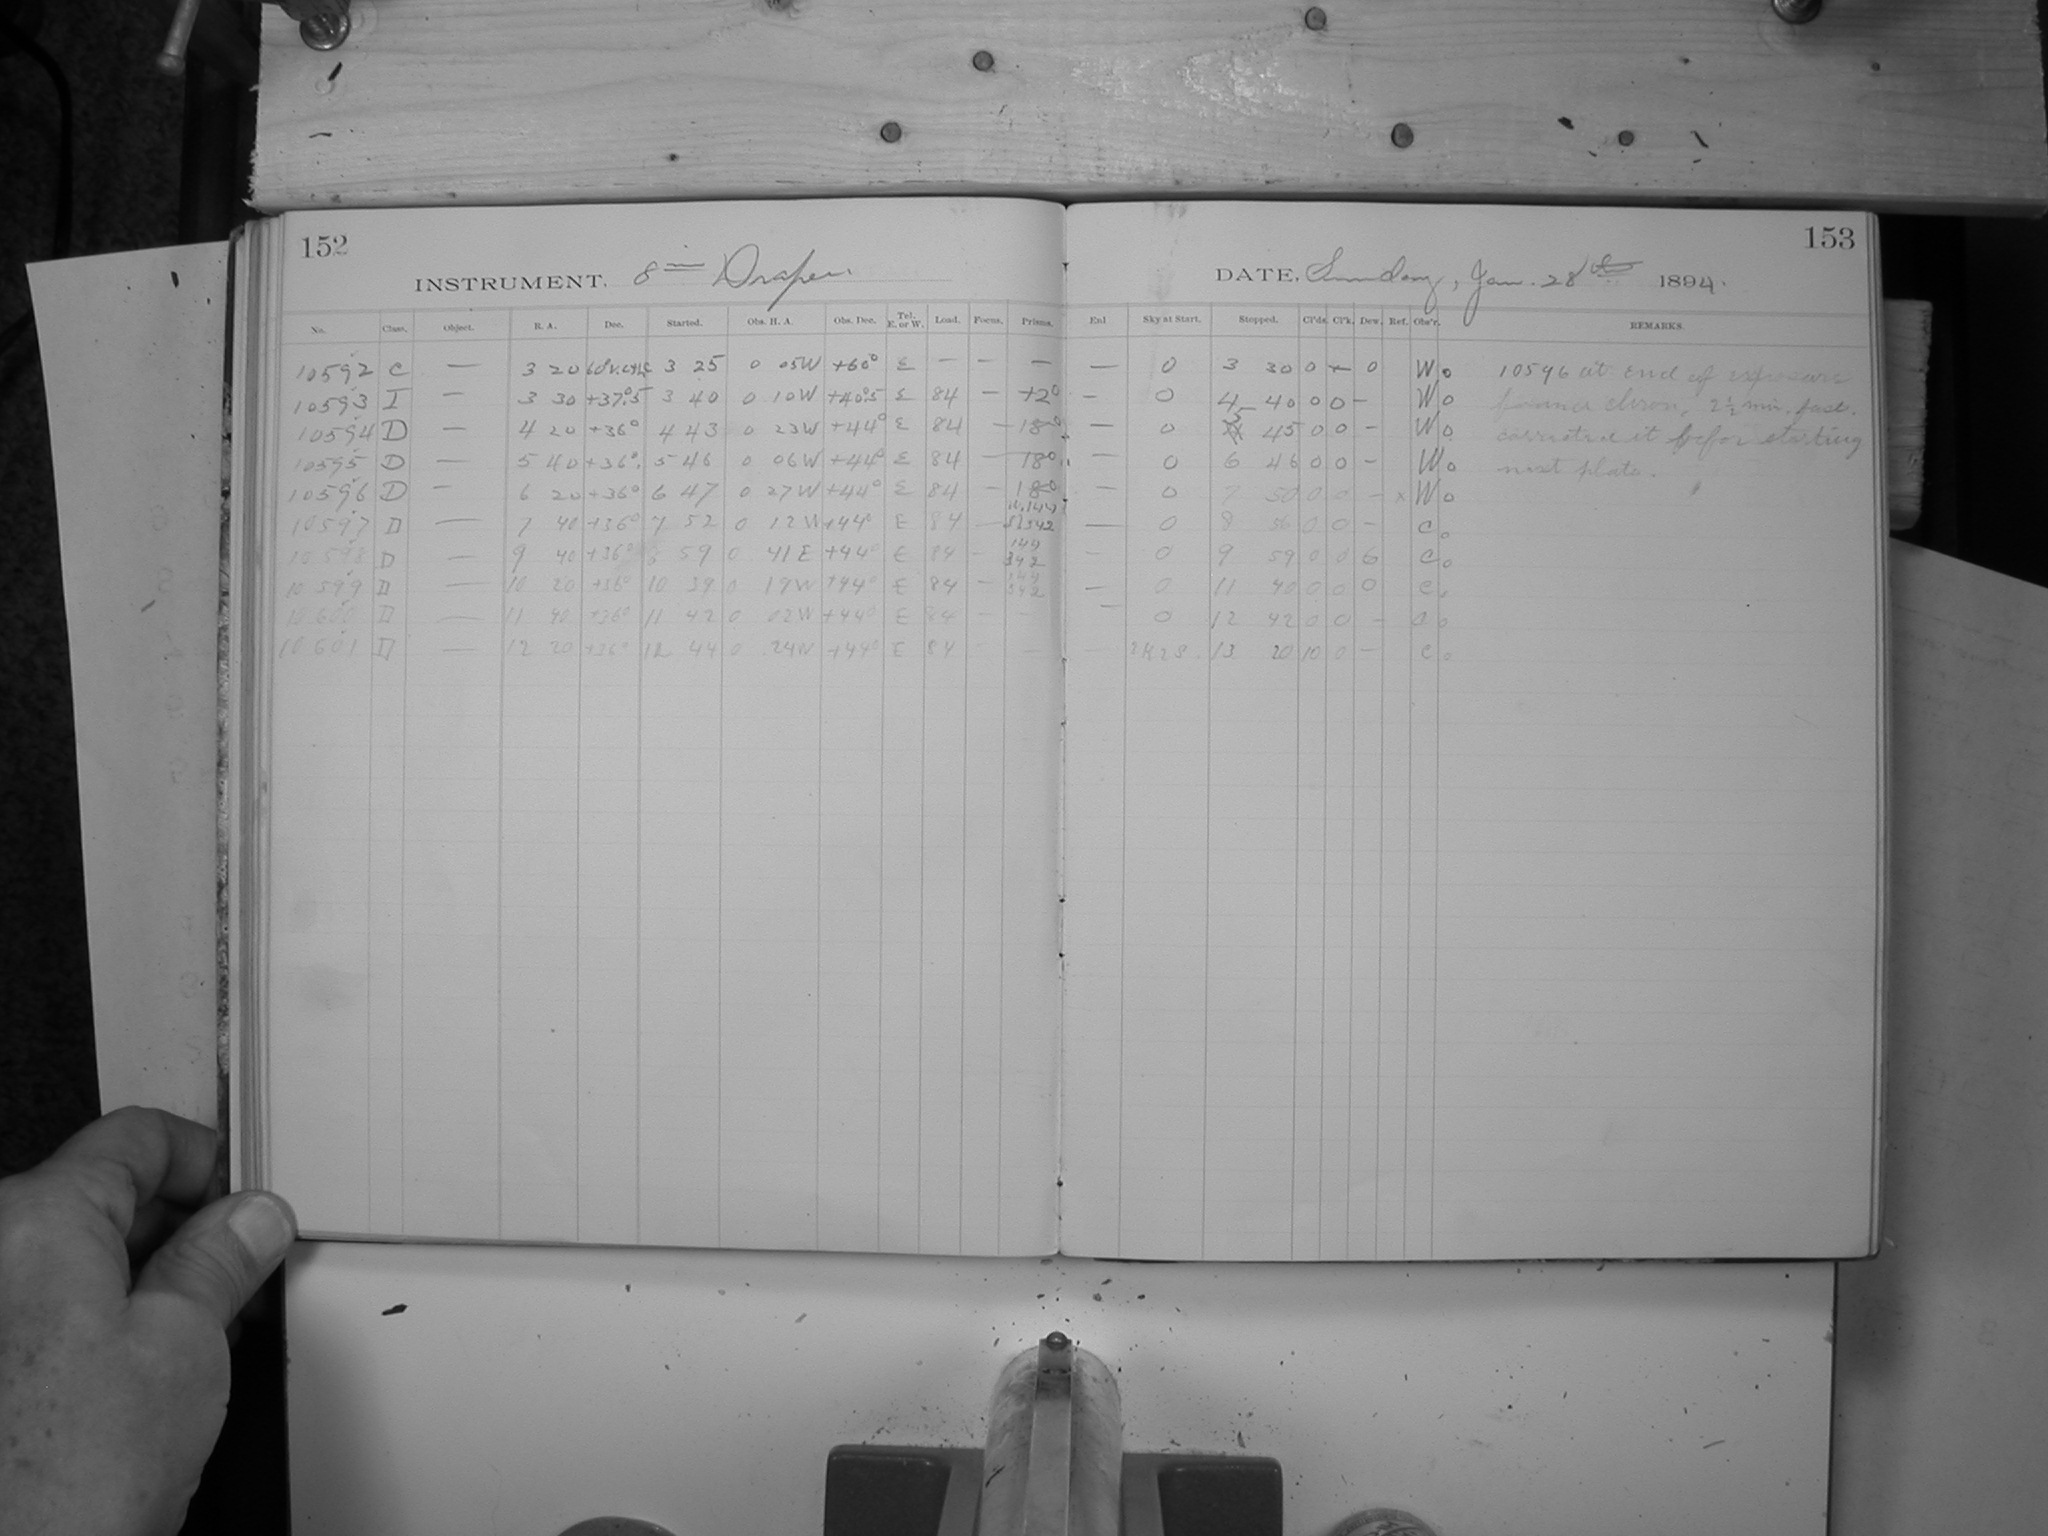 152
153
INSTRUMENT. 8 in Draper.
DATE, Sunday, Jan. 28th 1894.
No. Class. Object. R. A. Dec. Started. Obs. H. A. Obs. Dec. Tel. E. or W. Load. Focus. Prisms. Enl Sky at Start. Stopped. Cl'ds. Cl'k. Dew. Ref. Obs'r. REMARKS.
10592 C — 3 20 3 25 0 05W +60° E — — — — 0 3 30 0 0 Wo 10596 at end of exposure
10593 I — 3 30 +37°.5 3 40 0 10W +40°.5 E 84 — +2° — 0 4 40 0 0 — Wo chron. 2½ min. fast.
10594 D — 4 20 +36° 4 43 0 23W +44° E 84 — 18° — 0 5 45 0 0 — Wo corrected it before starting
10595 D — 5 40 +36° 5 46 0 06W +44° E 84 — 18° 0 6 46 0 0 — Wo next plate.
10596 D — 6 20 +36° 6 47 0 27W +44° E 84 — 18° 0 7 50 0 0 — x Wo
10597 D — 7 40 +36° 7 52 0 12W +44° E 84 — — 0 8 56 0 0 — C.
10598 D — 9 40 +36° 8 59 0 41E +44° E 84 — 144 342 — 0 9 59 0 0 6 C.
10599 D — 10 20 +36° 10 39 0 19W +44° E 84 — 144 342 — 0 11 40 0 0 0 C.
10600 D — 11 40 +36° 11 42 0 02W +44° E 84 — — — 0 12 42 0 0 — C.
10601 D — 12 20 +36° 12 44 0 24W +44° E 84 — — — 13 20 10 0 — C.